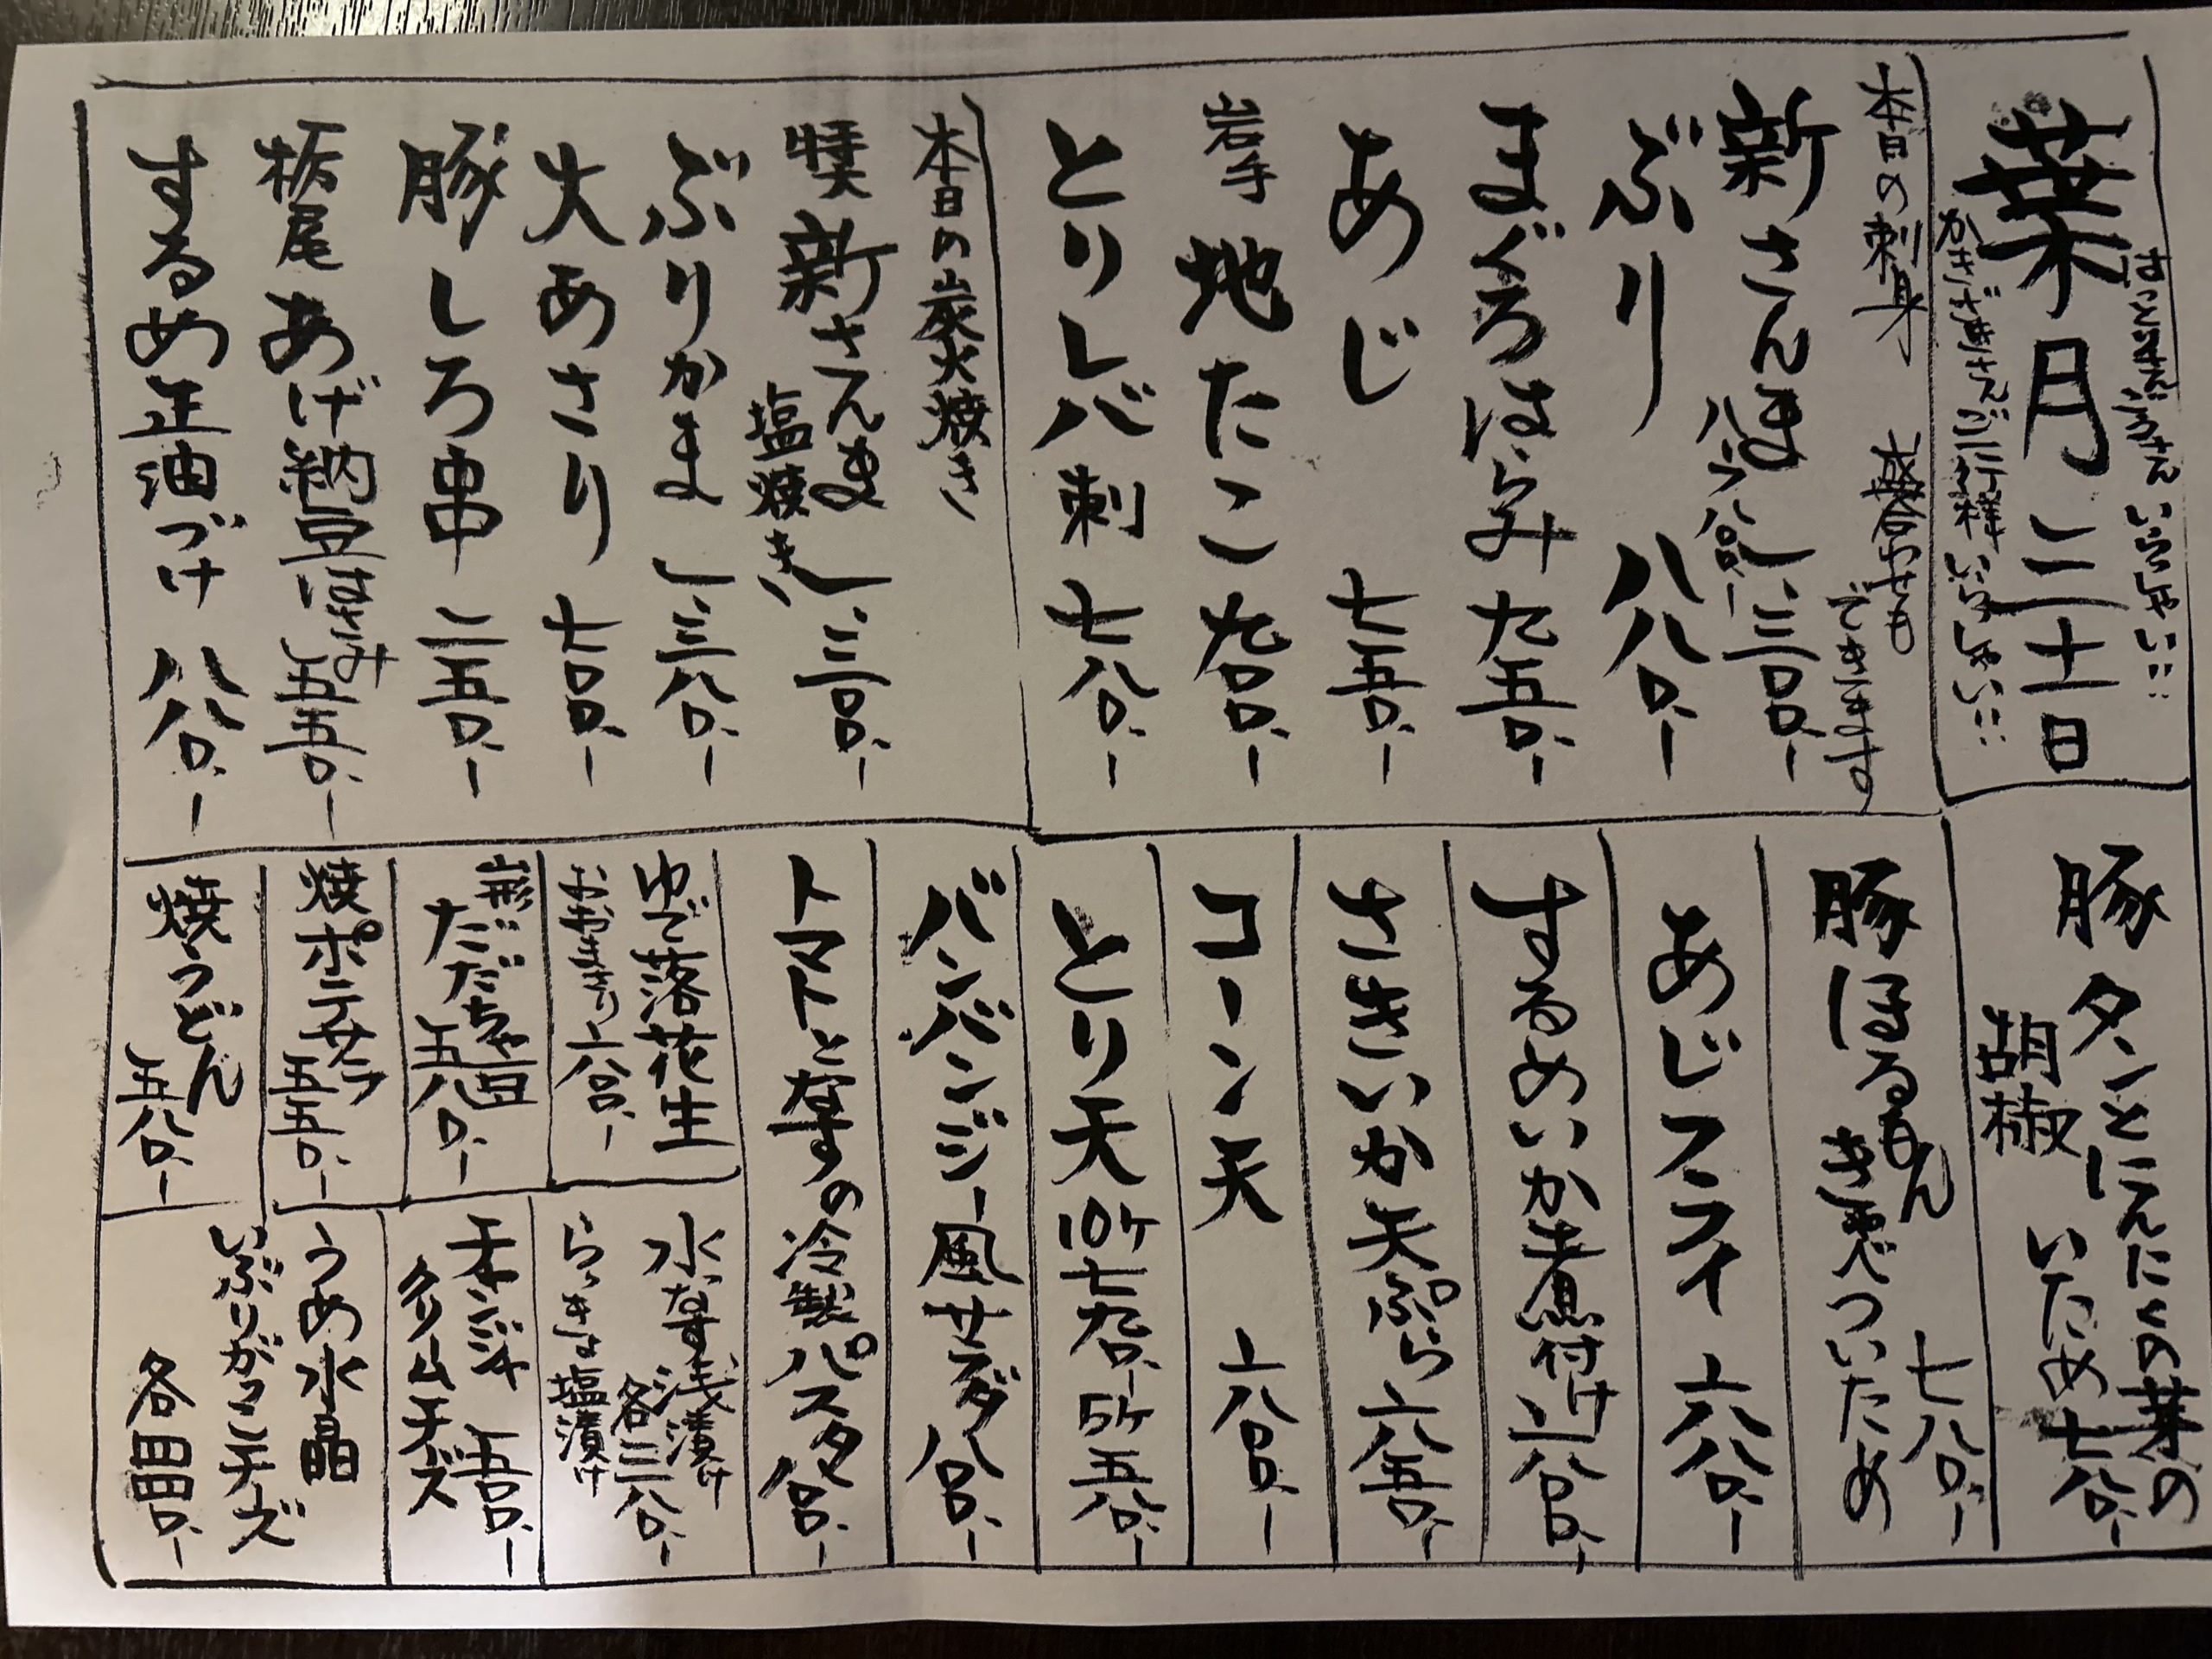 葉月二十一日
いらっしゃい!!
かきざきさんご一行様 いらっしゃい!!
本日の刺身 盛合わせもできます
新さんま 一、三〇〇.ー
ハーフ 八〇〇.ー
ぶり 八八〇.ー
まぐろはらみ 九五〇.ー
あじ 七五〇.ー
岩手 地たこ 九〇〇.ー
とりレバ刺 七八〇.ー
本日の炭火焼き
特大 新さんま 塩焼き 一、三〇〇.ー
ぶりかま 一、三八〇.ー
大あさり 七〇〇.ー
豚しろ串 二五〇.ー
栃尾あげ納豆はさみ 五五〇.ー
するめ正油づけ 八八〇.ー
豚タンとにんにくの芽の
胡椒いため 七八〇.ー
豚ほるもん
きゃべついため 七八〇.ー
あじフライ 六八〇.ー
するめいか煮付け 六八〇.ー
さきいか天ぷら 六五〇.ー
コーン天 六八〇.ー
とり天 10ヶ 七九〇.ー 5ヶ 五八〇.ー
バンバンジー風サラダ 八八〇.ー
トマトとなすの冷製パスタ 八八〇.ー
ゆで落花生
おおまさり 六八〇.ー
山形 だだちゃ豆 五八〇.ー
焼ポテサラ 五五〇.ー
焼うどん 五八〇.ー
水なす浅漬け
らっきょ塩漬け
各三八〇.ー
チャンジャ
クリームチーズ 五五〇.ー
うめ水晶
いぶりがっこチーズ
各四四〇.ー